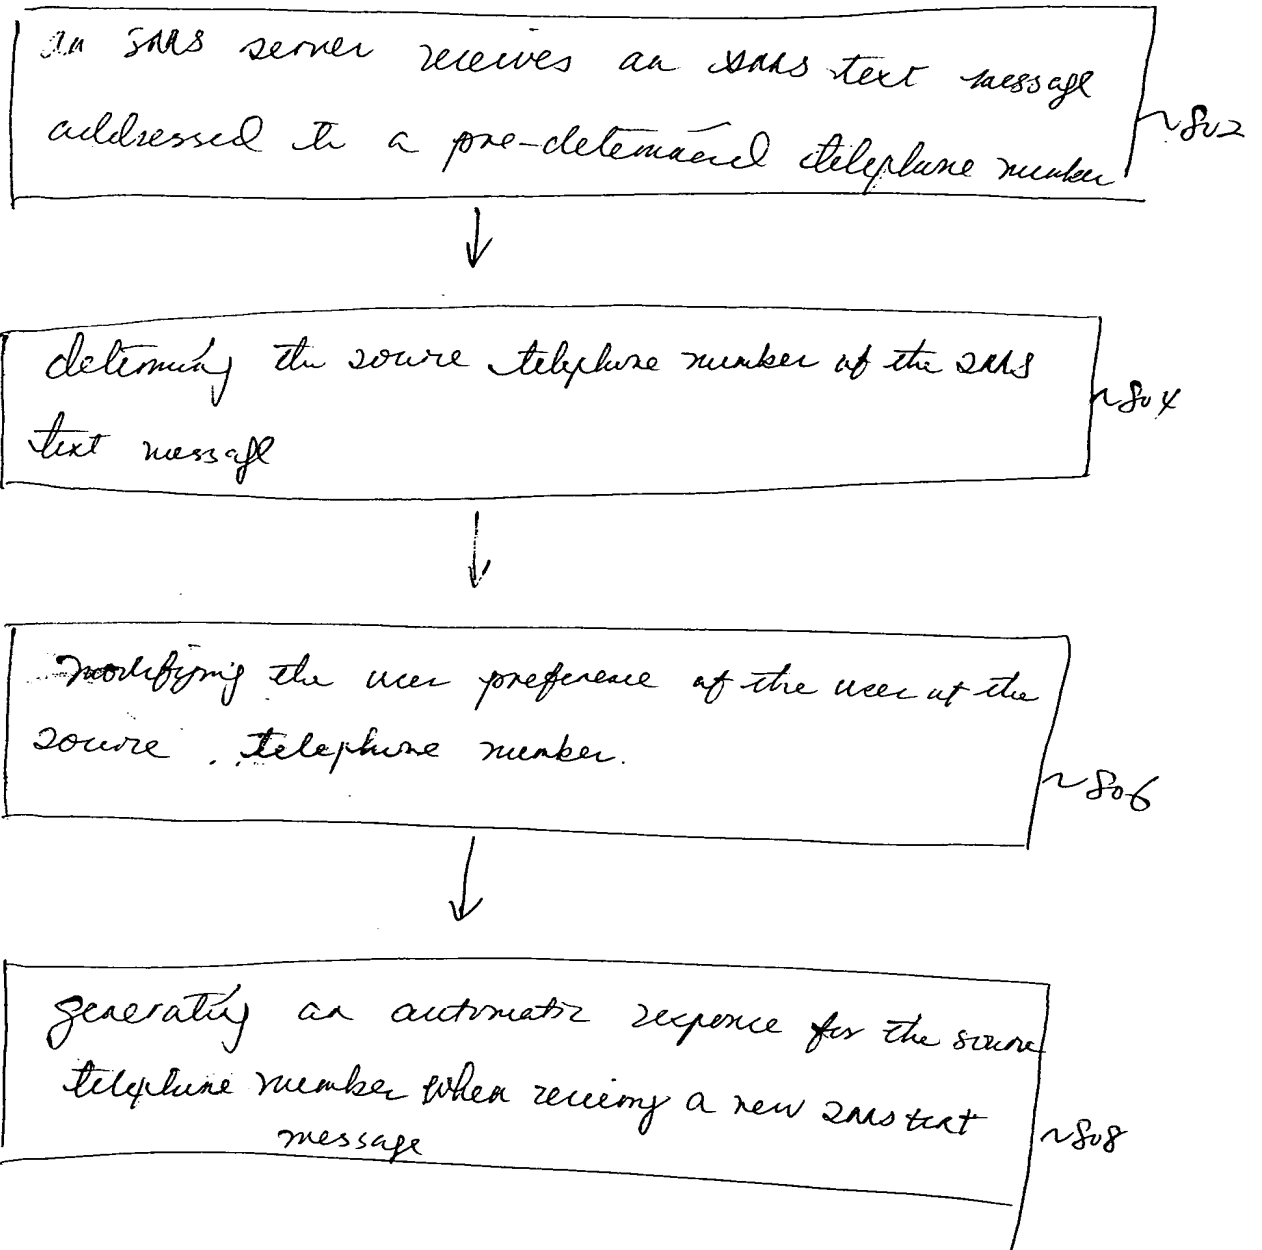 an SMS server receives an SMS text message
addressed to a pre-determined telephone number
~802
determining the source telephone number of the SMS
text message
~804
modifying the user preference of the user at the
source telephone number.
~806
generating an automatic response for the source
telephone number when receiving a new SMS text
message
~808